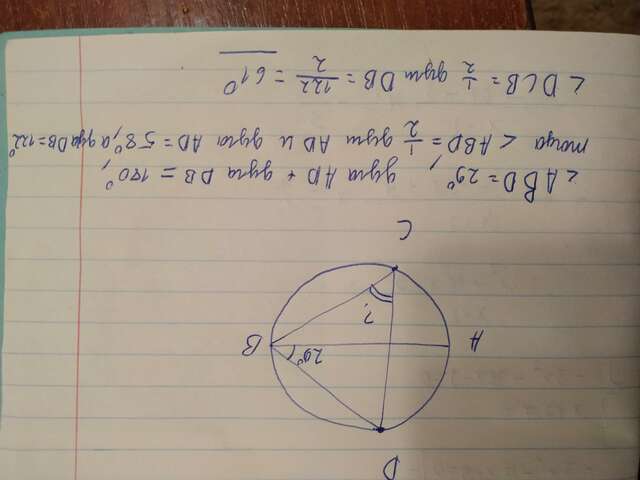 D
A
29°
B
?
C
∠ABD = 29°, дуга AD + дуга DB = 180°,
тогда ∠ABD = 1/2 дуги AD и дуга AD = 58°, а дуга DB = 122°
∠DCB = 1/2 дуги DB = 122/2 = 61°